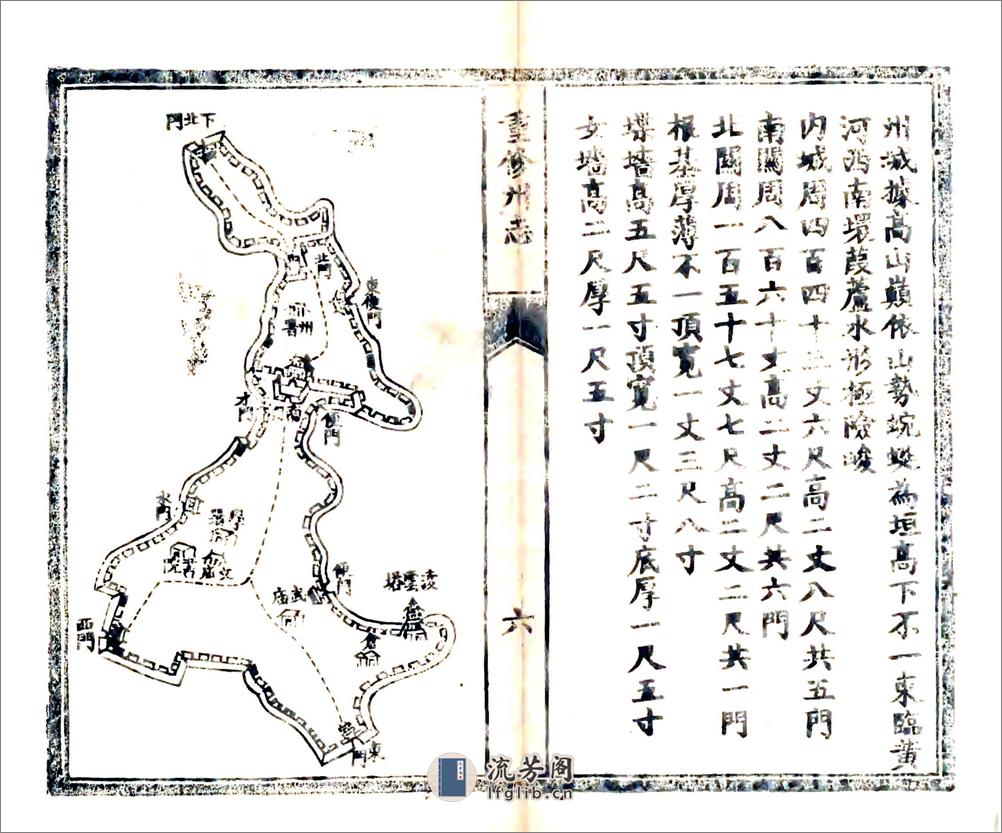 州城據高山巔依山勢蜿蜒為垣高下不一東臨黃
河西南環葭蘆水游極險峻
内城周四百四十三丈六尺高二丈八尺共五門
南關周八百六十丈高二丈二尺共六門
北關周一百五十七丈七尺高二丈二尺共一門
根基厚薄不一頂寬一丈三尺八寸
垜墻高五尺五寸頂寬一尺二寸底厚一尺五寸
女墻高二尺厚一尺五寸
重修州志
六
下北門
北門
東便門
州署
南門
便門
水門
水門
學署
書院
文廟
便門
武廟
凌雲塔
倉
西門
東門
流芳阁
lfglib.cn